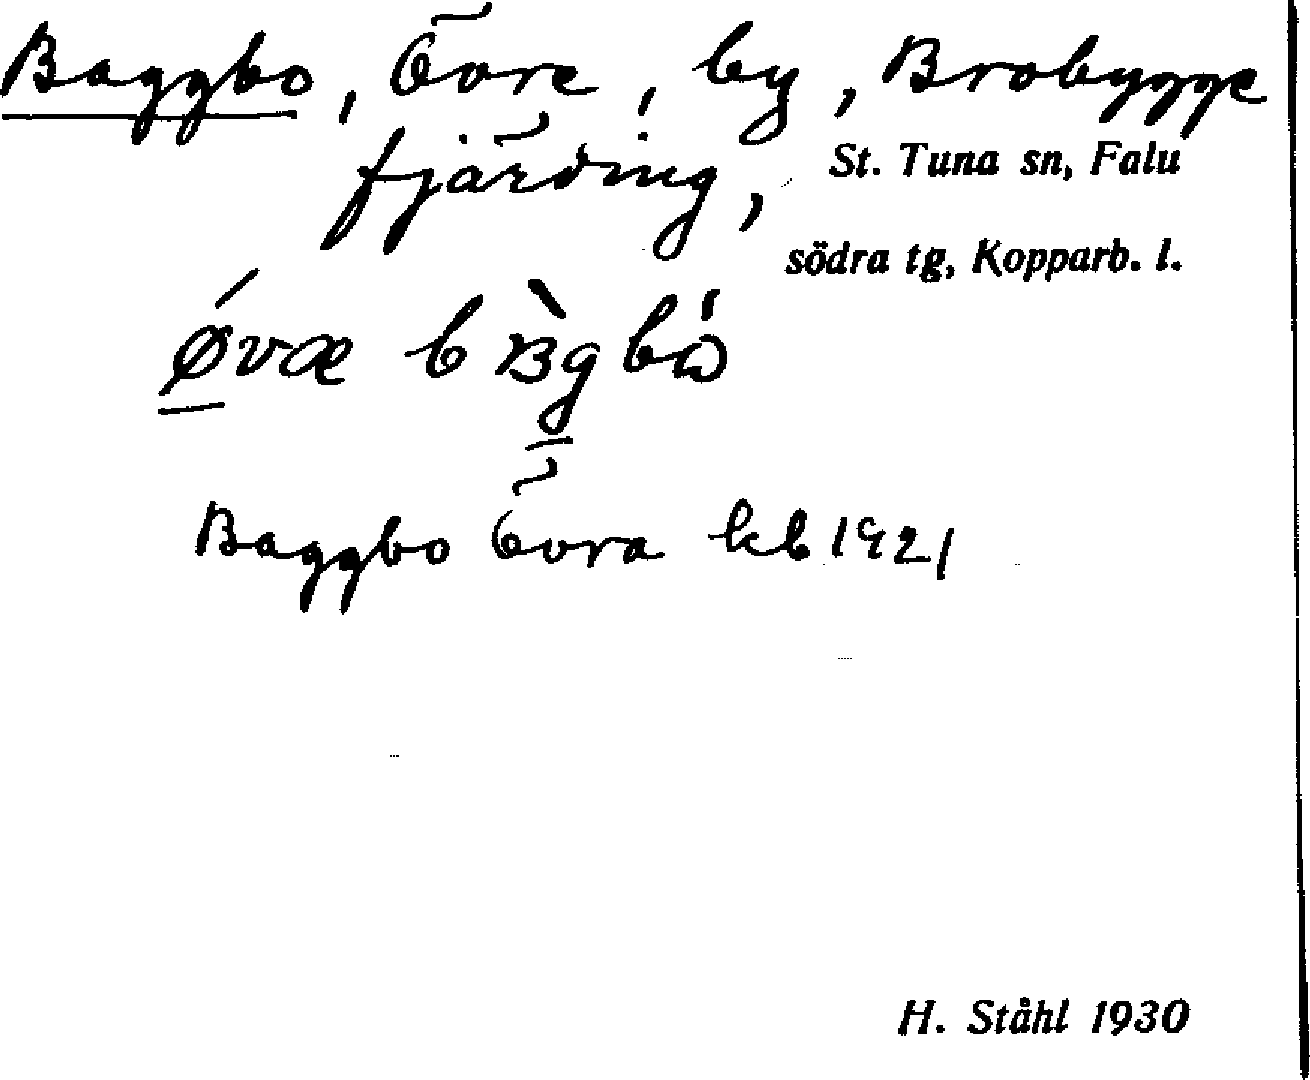 Baggbo, Övre, by, Brobygge
fjärding, St. Tuna sn, Falu
södra tg, Kopparb. l.
Baggbo Övra kb 1921
H. Ståhl 1930